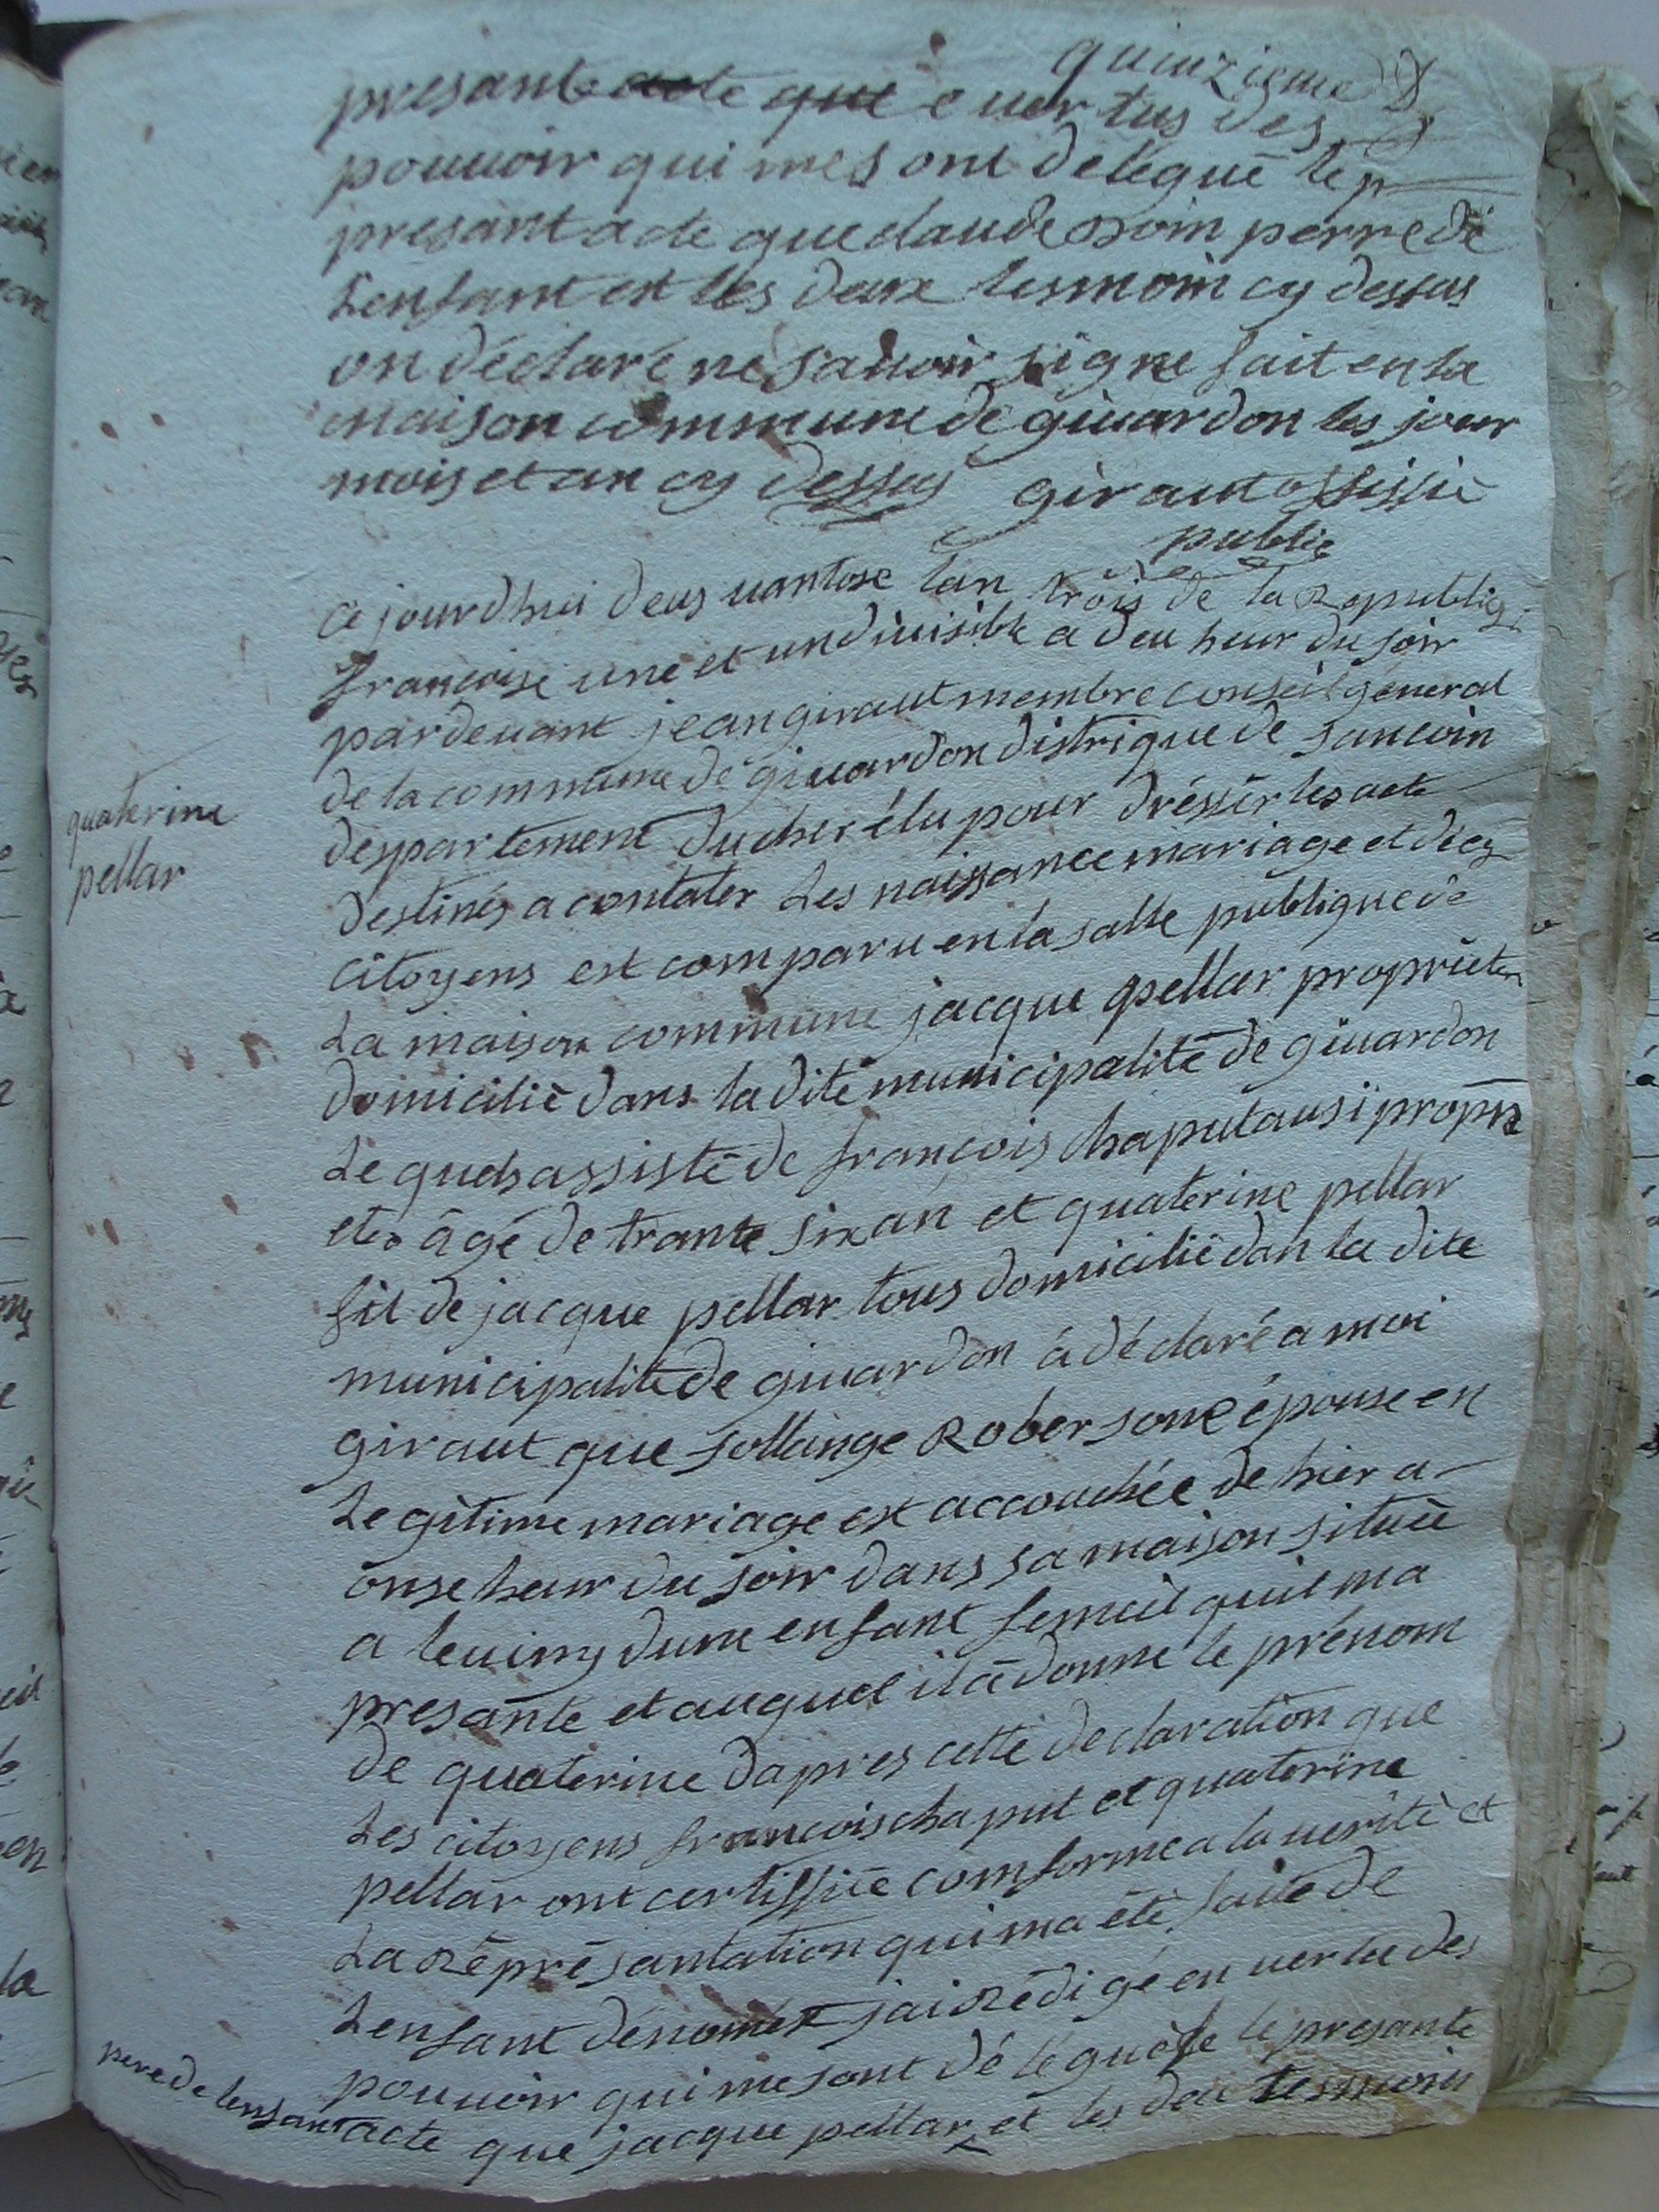 quinzieme
presante acte que e uertus des
pouuoir qui mes ont delegué le p
presant acte que claude roin perre de
Lenfant et les deux tesmoin cy dessus
on déclaré ne sauoir signe fait en la
maison commune de giuardon les jour
mois et an cy dessus giraut offissiè
public
ce jourdhui deus uantose lan trois de la Republiq
francoise une et undiuisible a deu heur du soir
pardeuant jean giraut membre conseil general
de la commune de giuardon distrique de sancoin
despartement du cher élu pour dréssér les acte
destinés a contater Les naissance mariage et décq
citoyens est comparu en la salle publique de
La maison commune jacque pellar proprièter
domicilié dans la dite municipalité de giuardon
Le quels assisté de françois chaput ausi propri
eter âgé de trante six an et quaterine pellar
fil de jacque pellar tous domicilié dan la dite
municipalité de giuardon á déclaré a moi
giraut que sollange Rober sone épouse en
Legitime mariage est accouchée de hier a
onse heur du soir dans sa maison située
a leuiny dune enfant femeil quil ma
presante et auquel il a donne le prénom
de quaterine dapres cette declaration que
Les citoyens francois chaput et quaterine
pellar ont certiffiie comforme a la uerité et
La Réprésantation qui ma été faite de
Lenfant dénomér jai Rédigé en uertu des
pouuoir qui me sont délégué le presante
acte que jacque pellar et les deu tesmoin
quaterine
pellar
pere de lenfant